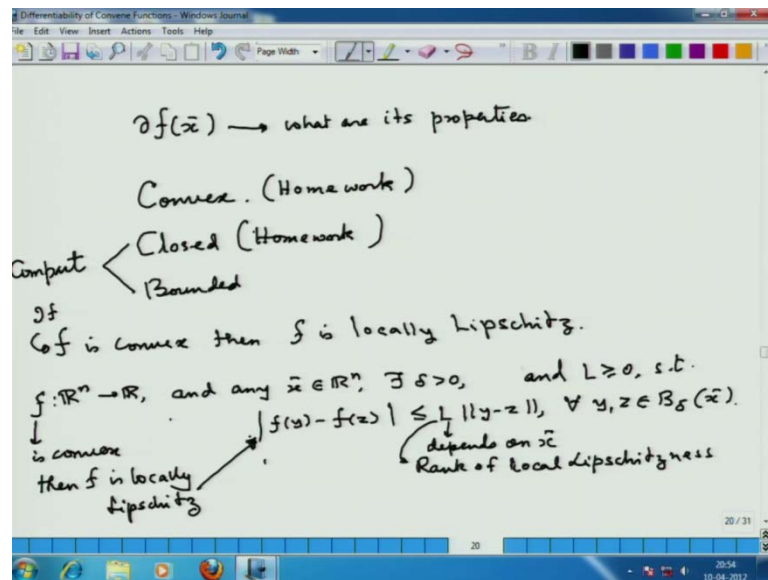 Differentiability of Convene Functions - Windows Journal
File Edit View Insert Actions Tools Help
Page Width
B I
∂f(x̄) → what are its properties
Convex. (Homework)
Compact < Closed (Homework)
Bounded
If
f is convex then f is locally Lipschitz.
f: ℝⁿ → ℝ, and any x̄ ∈ ℝⁿ, ∃ δ>0, and L ≥ 0, s.t.
|f(y) - f(z)| ≤ L ||y-z||, ∀ y, z ∈ B_δ(x̄).
is convex
depends on x̄
then f is locally
Rank of local Lipschitzness
Lipschitz
20 / 31
20
20:54
10-04-2012